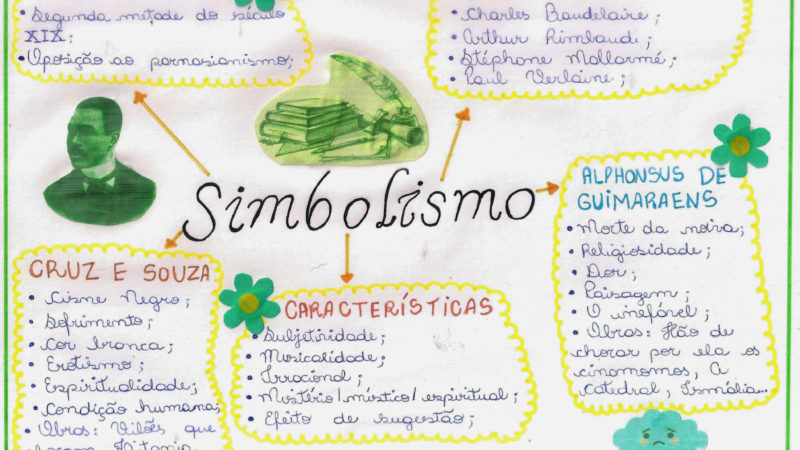 • Segunda metade do século
XIX;
• Oposição ao parnasianismo;
• Charles Baudelaire;
• Arthur Rimbaud;
• Stéphane Mallarmé;
• Paul Verlaine;
Simbolismo
ALPHONSUS DE
GUIMARAENS
• Morte da noiva;
• Religiosidade;
• Dor;
• Paisagem;
• O inefável;
• Obras: Hão de
chorar por ela os
cinamomos, A
Catedral, Ismália...
CRUZ E SOUZA
• Cisne Negro;
• Sofrimento;
• Cor branca;
• Erotismo;
• Espiritualidade;
• Condição humana;
• Obras: Violões que
CARACTERÍSTICAS
• Subjetividade;
• Musicalidade;
• Irracional;
• Mistério/místico/espiritual;
• Efeito de sugestão;